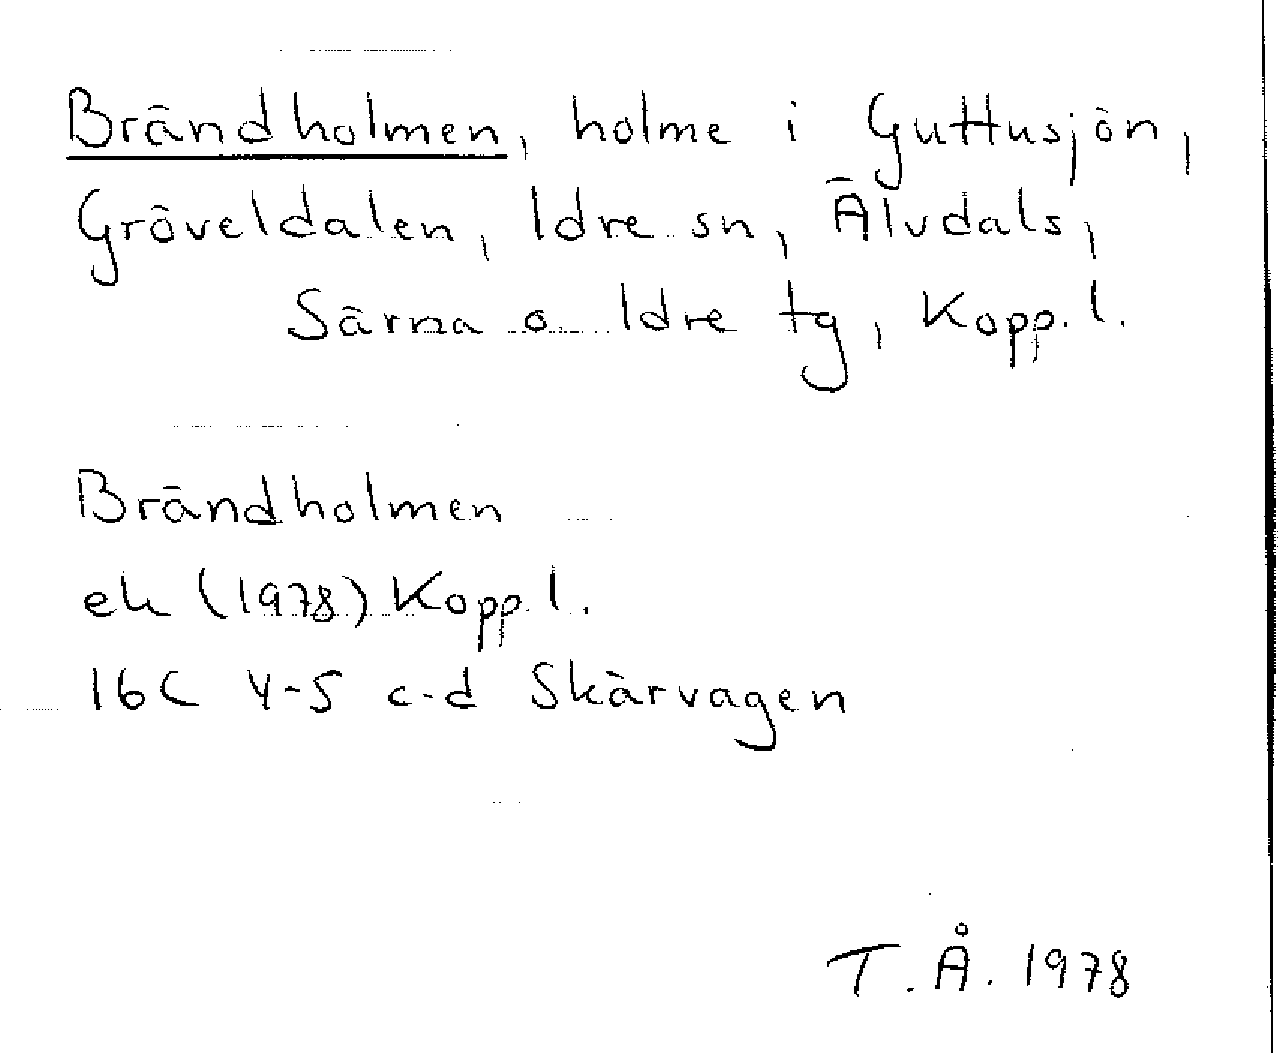 Brändholmen, holme i Guttusjön,
Gröveldalen, Idre sn, Älvdals,
Särna o Idre tg, Kopp. l.
Brändholmen
ek (1978) Kopp l.
16C 4-5 c-d Skärvagen
T. Å. 1978